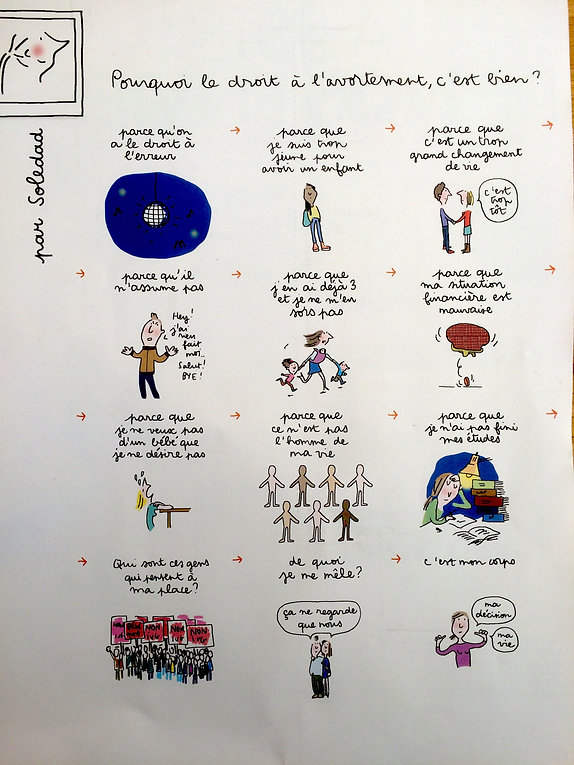 Pourquoi le droit à l'avortement, c'est bien?
par Soledad
parce qu'on
a le droit à
l'erreur
parce que
je suis trop
jeune pour
avoir un enfant
parce que
c'est un trop
grand changement
de vie
c'est
trop
tôt
parce qu'il
n'assume pas
Hey!
j'ai
rien
fait
moi..
Salut!
BYE!
parce que
j'en ai déjà 3
et je ne m'en
sors pas
parce que
ma situation
financière est
mauvaise
parce que
je ne veux pas
d'un bébé que
je ne désire pas
parce que
ce n'est pas
l'homme de
ma vie
parce que
je n'ai pas fini
mes études
Qui sont ces gens
qui pensent à
ma place?
NON
NON
NON
NON
de quoi
je me mêle?
ça ne regarde
que nous
c'est mon corps
ma
décision
ma
vie